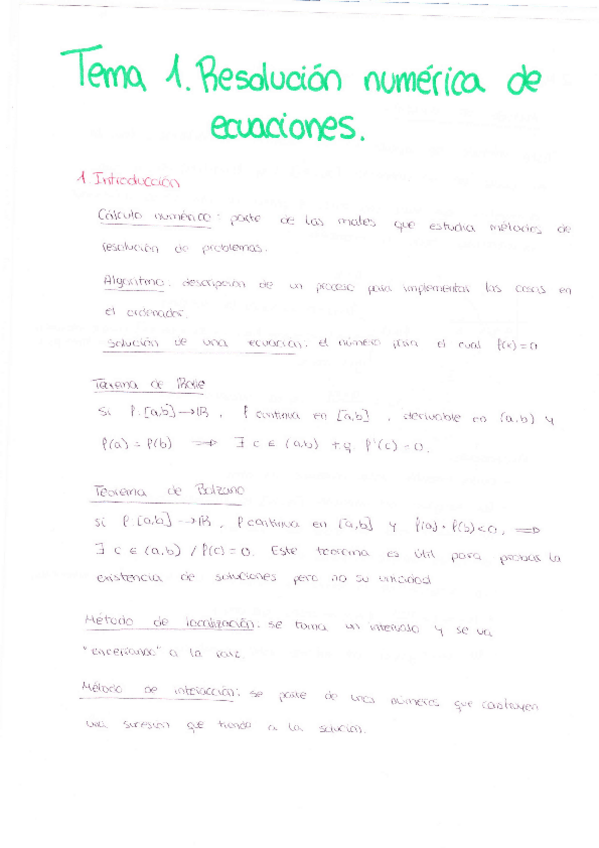 Tema 1. Resolución numérica de
ecuaciones.
1. Introducción
Cálculo numérico: parte de las mates que estudia métodos de
resolución de problemas.
Algoritmo: descripción de un proceso para implementar las cosas en
el ordenador.
Solución de una ecuación: el número para el cual f(x)=0
Teorema de Rolle
Si f:[a,b]→ℝ, f continua en [a,b], derivable en (a,b) y
f(a) = f(b) ⟹ ∃ c ∈ (a,b) t.q. f'(c) = 0.
Teorema de Bolzano
Si f:[a,b]→ℝ, f continua en [a,b] y f(a)·f(b)<0, ⟹
∃ c ∈ (a,b) / f(c) = 0. Este teorema es útil para probar la
existencia de soluciones pero no su unicidad
Método de localización: se toma un intervalo y se va
a la raíz.
Método de interacción: se parte de unos números que construyen
una sucesión que tiende a la solución.